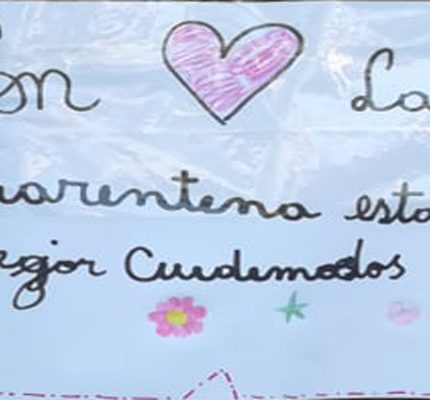 En La
uarentena esta
ejor Cuidemodos